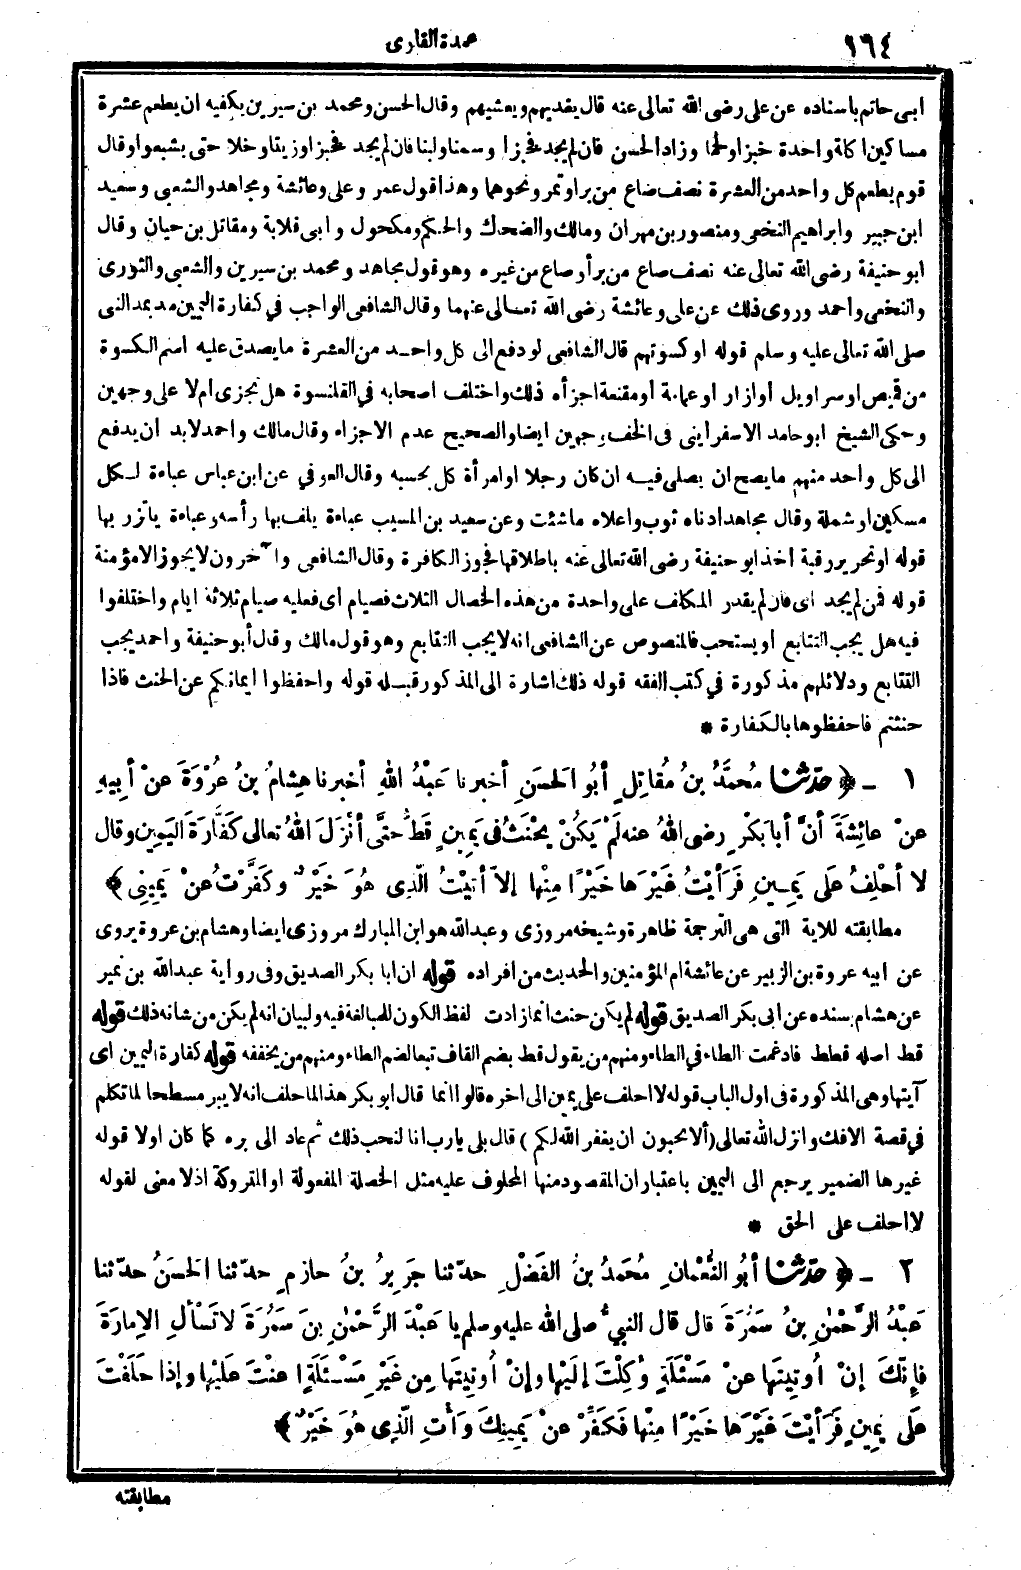 ١٦٤
عمدة القارى
ابى حاتم باسناده عن على رضى الله تعالى عنه قال يغديهم ويعشيهم وقال الحسن ومحمد بن سيرين يكفيه ان يطعم عشرة
مساكين اكلة واحدة خبزا ولحما وزاد الحسن فان لم يجد فخبزا وسمنا ولبنا فان لم يجد فخبزا وزيتا وخلا حتى يشبعوا وقال
قوم يطعم كل واحد من العشرة نصف صاع من بر او تمر ونحوهما وهذا قول عمر وعلى وعائشة ومجاهد والشعبى وسعيد
ابن جبير وابراهيم النخعى ومنصور بن مهران ومالك والضحاك والحكم ومكحول وابى قلابة ومقاتل بن حيان وقال
ابو حنيفة رضى الله تعالى عنه نصف صاع من بر أو صاع من غيره وهو قول مجاهد ومحمد بن سيرين والشعبى والثورى
والنخعى واحمد وروى ذلك عن على وعائشة رضى الله تعالى عنهما وقال الشافعى الواجب في كفارة اليمين مد بمد النبى
صلى الله تعالى عليه وسلم قوله او كسوتهم قال الشافعى لو دفع الى كل واحد من العشرة ما يصدق عليه اسم الكسوة
من قميص او سراويل أو ازار او عمامة أو مقنعة اجزأه ذلك واختلف اصحابه في القلنسوة هل تجزى ام لا على وجهين
وحكى الشيخ ابو حامد الاسفراينى فى الخف وجهين ايضا والصحيح عدم الاجزاء وقال مالك واحمد لابد أن يدفع
الى كل واحد منهم ما يصح ان يصلى فيه ان كان رجلا او امرأة كل بحسبه وقال العوفي عن ابن عباس عباءة لكل
مسكين او شملة وقال مجاهد ادناه ثوب واعلاه ما شئت وعن سعيد بن المسيب عباءة يلف بها رأسه وعباءة يأتزر بها
قوله او تحرير رقبة أخذ ابو حنيفة رضى الله تعالى عنه باطلاقها فجوز الكافرة وقال الشافعى وآخرون لا يجوز الا مؤمنة
قوله فمن لم يجد اى فان لم يقدر المكلف على واحدة من هذه الخصال الثلاث فصيام أى فعليه صيام ثلاثة ايام واختلفوا
فيه هل يجب التتابع او يستحب فالمنصوص عن الشافعى انه لا يجب التتابع وهو قول مالك وقال أبو حنيفة واحمد يجب
التتابع ودلائلهم مذكورة في كتب الفقه قوله ذلك اشارة الى المذكور قبله قوله واحفظوا ايمانكم عن الحنث فاذا
حنثتم فاحفظوها بالكفارة *
١ ـ ﴿ حدّثنا مُحمَّدُ بنُ مُقاتِلٍ أبُو الحَسَنِ أخبرنا عَبْدُ اللهِ أخبرنا هِشامُ بنُ عُرْوَةَ عنْ أبِيهِ
عنْ عائِشَةَ أنَّ أبا بَكْرٍ رضى اللهُ عنه لَمْ يَكُنْ يَحْنَثُ فى يَمِينٍ قَطُّ حتَّى أنْزَلَ اللهُ تعالى كَفَّارَةَ اليَمِينِ وقال
لا أحْلِفُ عَلَى يَمِينٍ فَرَأيْتُ غَيْرَها خَيْرًا مِنْها إلاَّ أتَيْتُ الَّذِى هُوَ خَيْرٌ وكَفَّرْتُ عنْ يَمِينِى ﴾
مطابقته للاية التى هى الترجمة ظاهرة وشيخه مروزى وعبدالله هو ابن المبارك مروزى ايضا وهشام بن عروة يروى
عن ابيه عروة بن الزبير عن عائشة ام المؤمنين والحديث من افراده قوله ان ابا بكر الصديق وفى رواية عبدالله بن نمير
عن هشام بسنده عن ابى بكر الصديق قوله لم يكن حنث انما زادت لفظ الكون للمبالغة فيه ولبيان انه لم يكن من شانه ذلك قوله
قط اصله قطط فادغمت الطاء في الطاء ومنهم من يقول قط بضم القاف تبعا لضم الطاء ومنهم من يخففه قوله كفارة اليمين اى
آيتها وهى المذكورة فى اول الباب قوله لا احلف على يمين الى اخره قالوا انما قال ابو بكر هذا لما حلف انه لا يبر مسطحا لما تكلم
في قصة الافك وانزل الله تعالى (ألا تحبون ان يغفر الله لكم) قال بلى يا رب انا لنحب ذلك ثم عاد الى بره كما كان اولا قوله
غيرها الضمير يرجع الى اليمين باعتبار ان المقصود منها المحلوف عليه مثل الخصلة المفعولة او المتروكة اذلا معنى لقوله
لا احلف على الحق *
٢ ـ ﴿ حدّثنا أبُو النُّعْمانِ مُحَمَّدُ بنُ الفَضْلِ حدّثنا جَرِيرُ بنُ حازِمٍ حدّثنا الحَسَنُ حدّثنا
عَبْدُ الرَّحْمٰنِ بنُ سَمُرَةَ قال قال النبىُّ صلى الله عليه وسلم يا عَبْدَ الرَّحْمٰنِ بنَ سَمُرَةَ لا تَسْألِ الإِمارَةَ
فإنَّكَ إنْ أُوتِيتَها عنْ مَسْئَلَةٍ وُكِلْتَ إلَيْها وإنْ أُوتِيتَها مِنْ غَيْرِ مَسْئَلَةٍ اُعِنْتَ عَلَيْها وإذا حَلَفْتَ
عَلَى يَمِينٍ فَرَأيْتَ غَيْرَها خَيْرًا مِنْها فَكَفِّرْ عنْ يَمِينِكَ وَأْتِ الَّذِى هُوَ خَيْرٌ ﴾
مطابقته